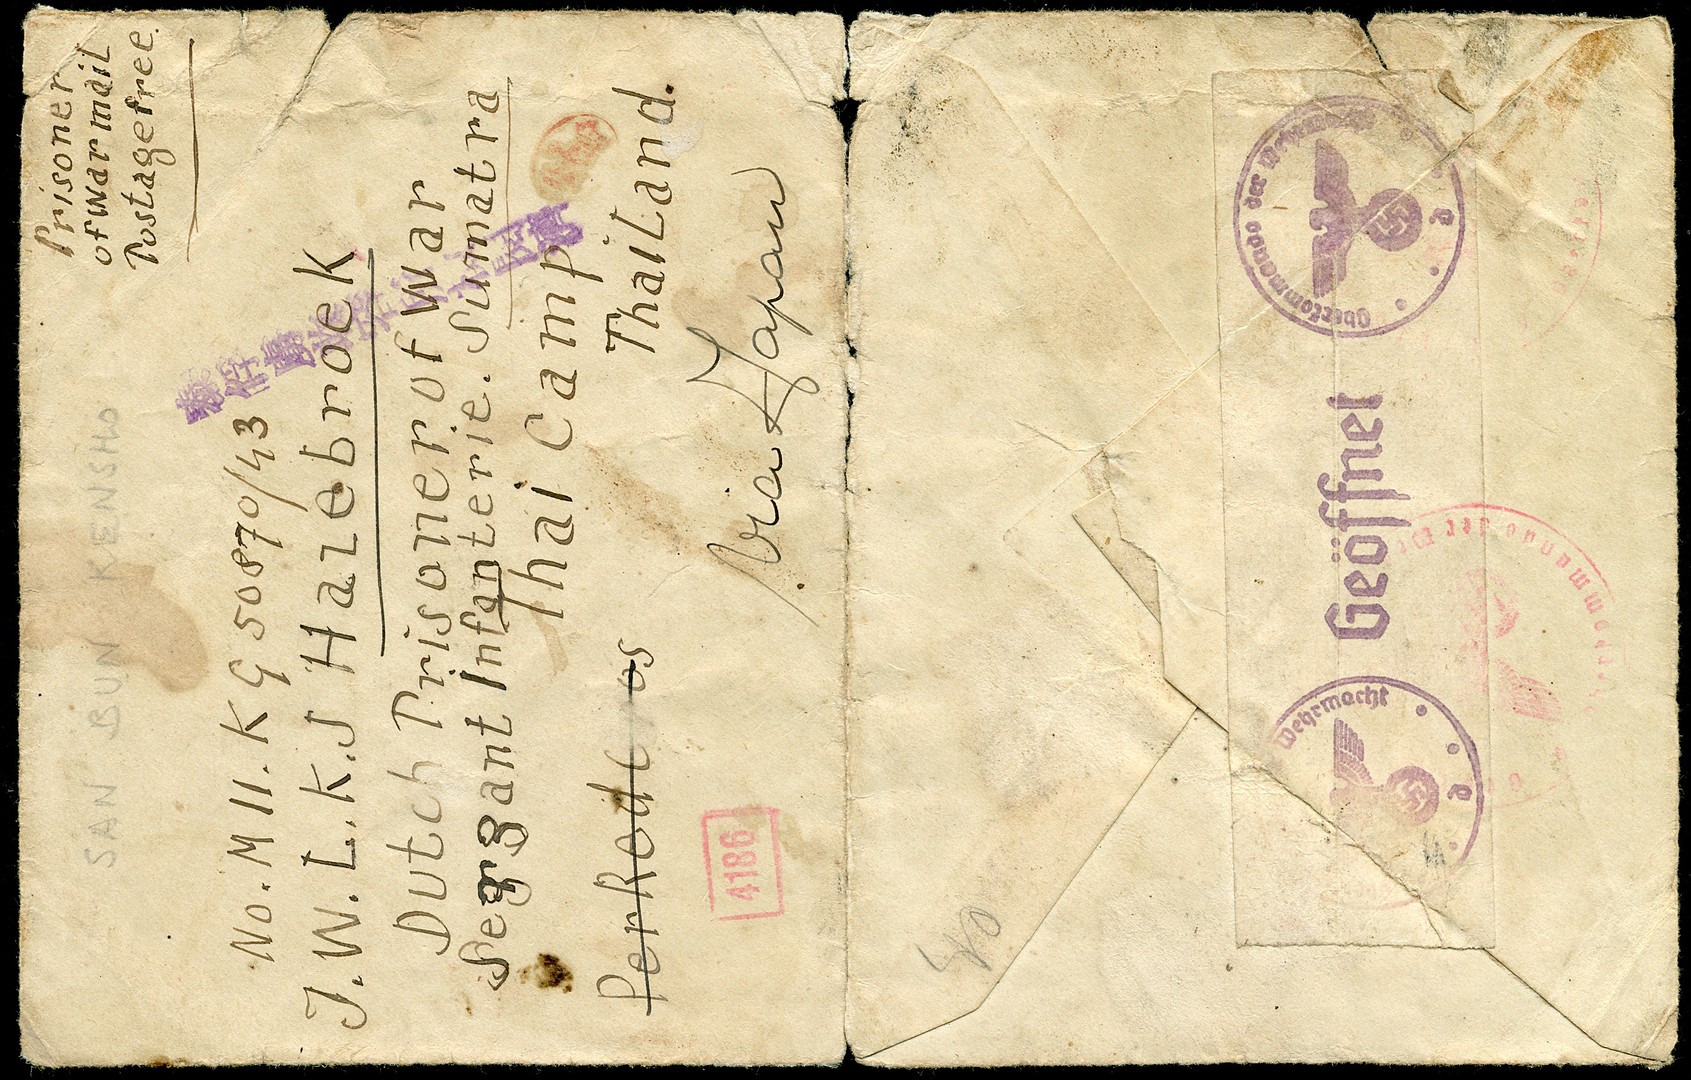 Prisoner
of war mail
Postage free.
SAN BUN KENSHO
No. M 11. K G 50870/43
J. W. L. K. J Hazebroek
Dutch Prisoner of War
Sergeant Infanterie. Sumatra
Thai Camp
Thailand.
Per Red
via Japan
4186
Oberkommando der Wehrmacht
d
Geöffnet
Wehrmacht
d